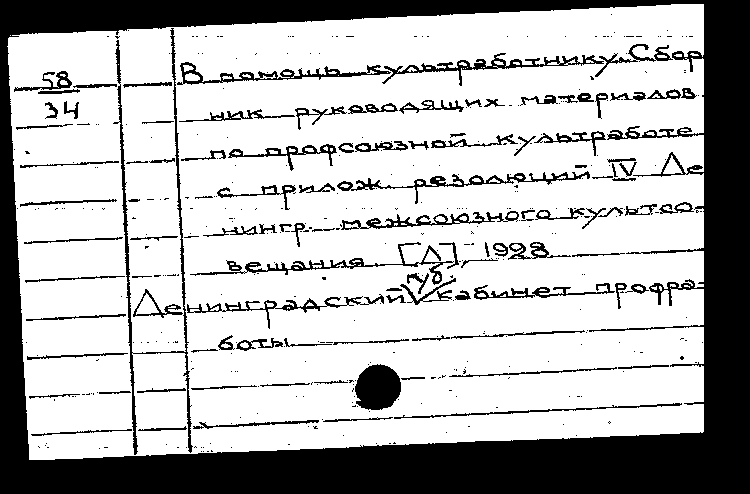 58
34
В помощь культработнику. Сбор
ник руководящих материалов
по профсоюзной культработе
с прилож. резолюций IV Ле
нингр. межсоюзного культсо-
вещания. [Л], 1928
губ.
Ленинградский кабинет профра-
боты